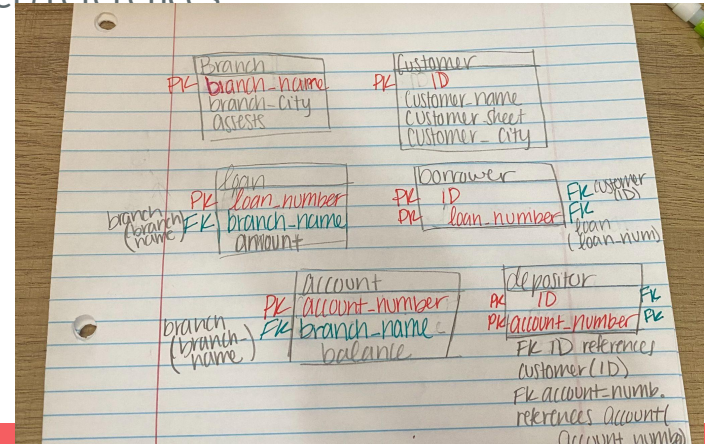 Branch
PK branch_name
branch-city
assests
Customer
PK ID
customer_name
customer_sheet
customer_city
loan
PK loan_number
branch (branch name) FK branch-name
amount
borrower
PK ID FK customer ID)
PK loan_number FK loan (loan_num)
account
PK account-number
branch (branch-name) FK branch_name
balance
depositor
PK ID FK
PK account_number FK
FK ID references
customer(ID)
FK account-numb.
references account(
account numb)